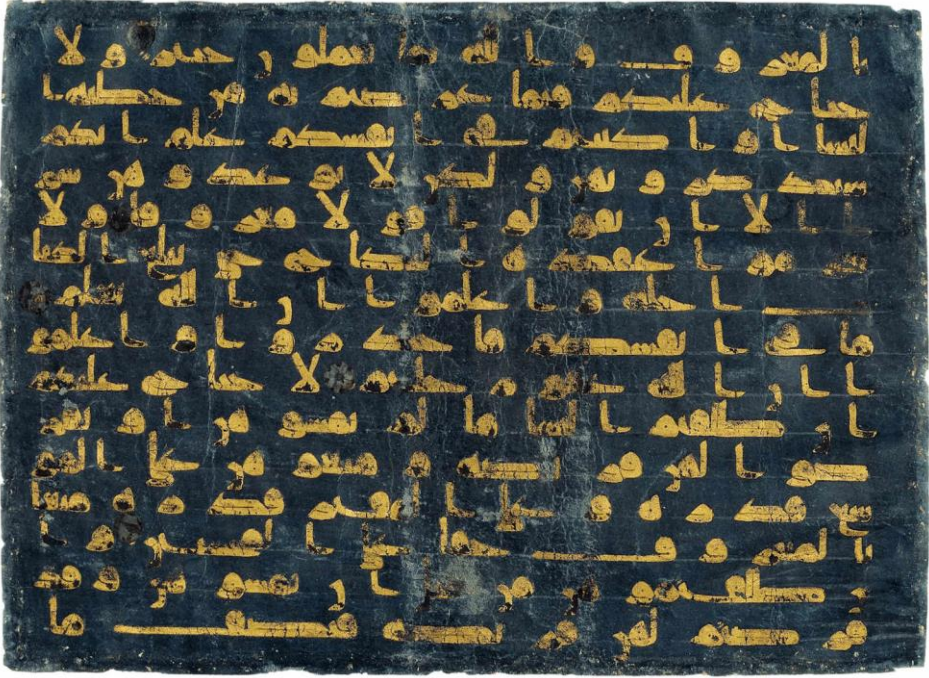 بالمعروف والله بما تعملون خبير ولا
جناح عليكم فيما عرضتم به من خطبة ا
لنسا او اكننتم في انفسكم علم الله انكم
ستذكرونهن ولكن لا تواعدوهن سر
ا الا ان تقولوا قولا معروفا ولا
تعزموا عقدة النكاح حتى يبلغ الكتا
ب اجله واعلموا ان الله يعلم
ما في انفسكم فاحذروه واعلمو
ا ان الله غفور حليم لا جناح عليكم
ان طلقتم النسا ما لم تمسوهن او تفر
ضوا لهن فريضة ومتعوهن على المو
سع قدره وعلى المقتر قدره متعا
بالمعروف حقا على المحسنين وا
ن طلقتموهن من قبل ان تمسوهن وقد
فرضتم لهن فريضة فنصف ما